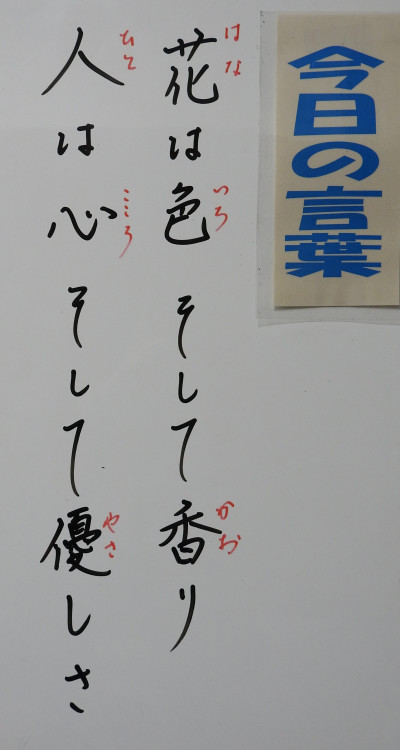 今日の言葉
花は色そして香り
はな
いろ
かお
人は心そして優しさ
ひと
こころ
やさ